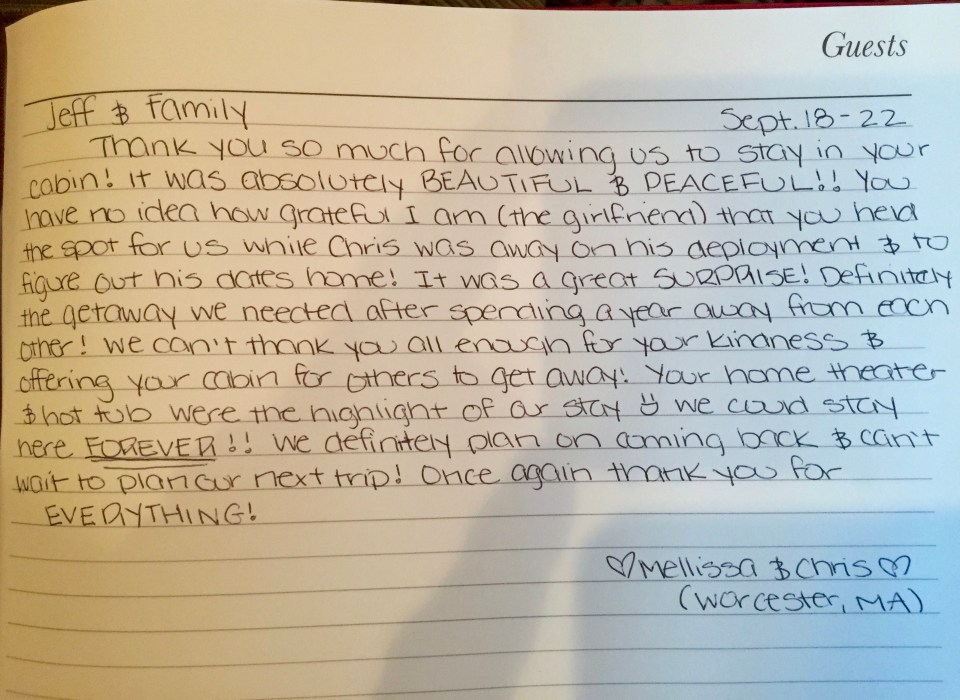 Guests
Jeff & Family Sept. 18-22
Thank you so much for allowing us to stay in your
cabin! It was absolutely BEAUTIFUL & PEACEFUL!! You
have no idea how grateful I am (the girlfriend) that you held
the spot for us while Chris was away on his deployment & to
figure out his dates home! It was a great SURPRISE! Definitely
the getaway we needed after spending a year away from each
other! We can't thank you all enough for your kindness &
offering your cabin for others to get away! Your home theater
& hot tub were the highlight of our stay ☺ we could stay
here FOREVER!! We definitely plan on coming back & can't
wait to plan our next trip! Once again thank you for
EVERYTHING!
♡Mellissa & Chris♡
(Worcester, MA)